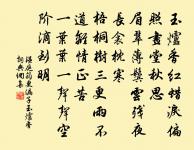 玉爐香紅蠟淚偏
照畫堂秋思
眉翠薄鬢雲殘夜
長衾枕寒
梧桐樹三更雨不
道離情正苦
一葉葉一聲聲空
階滴到明
溫庭筠更漏子玉爐香
詞典網集